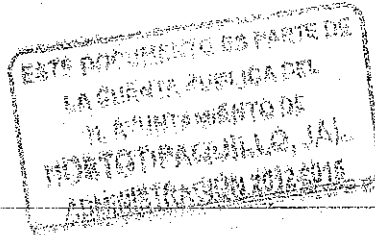 ESTE DOCUMENTO ES PARTE DE
LA CUENTA PUBLICA DEL
H. AYUNTAMIENTO DE
HOSTOTIPAQUILLO, JAL.
ADMINISTRACIÓN 2012-2015